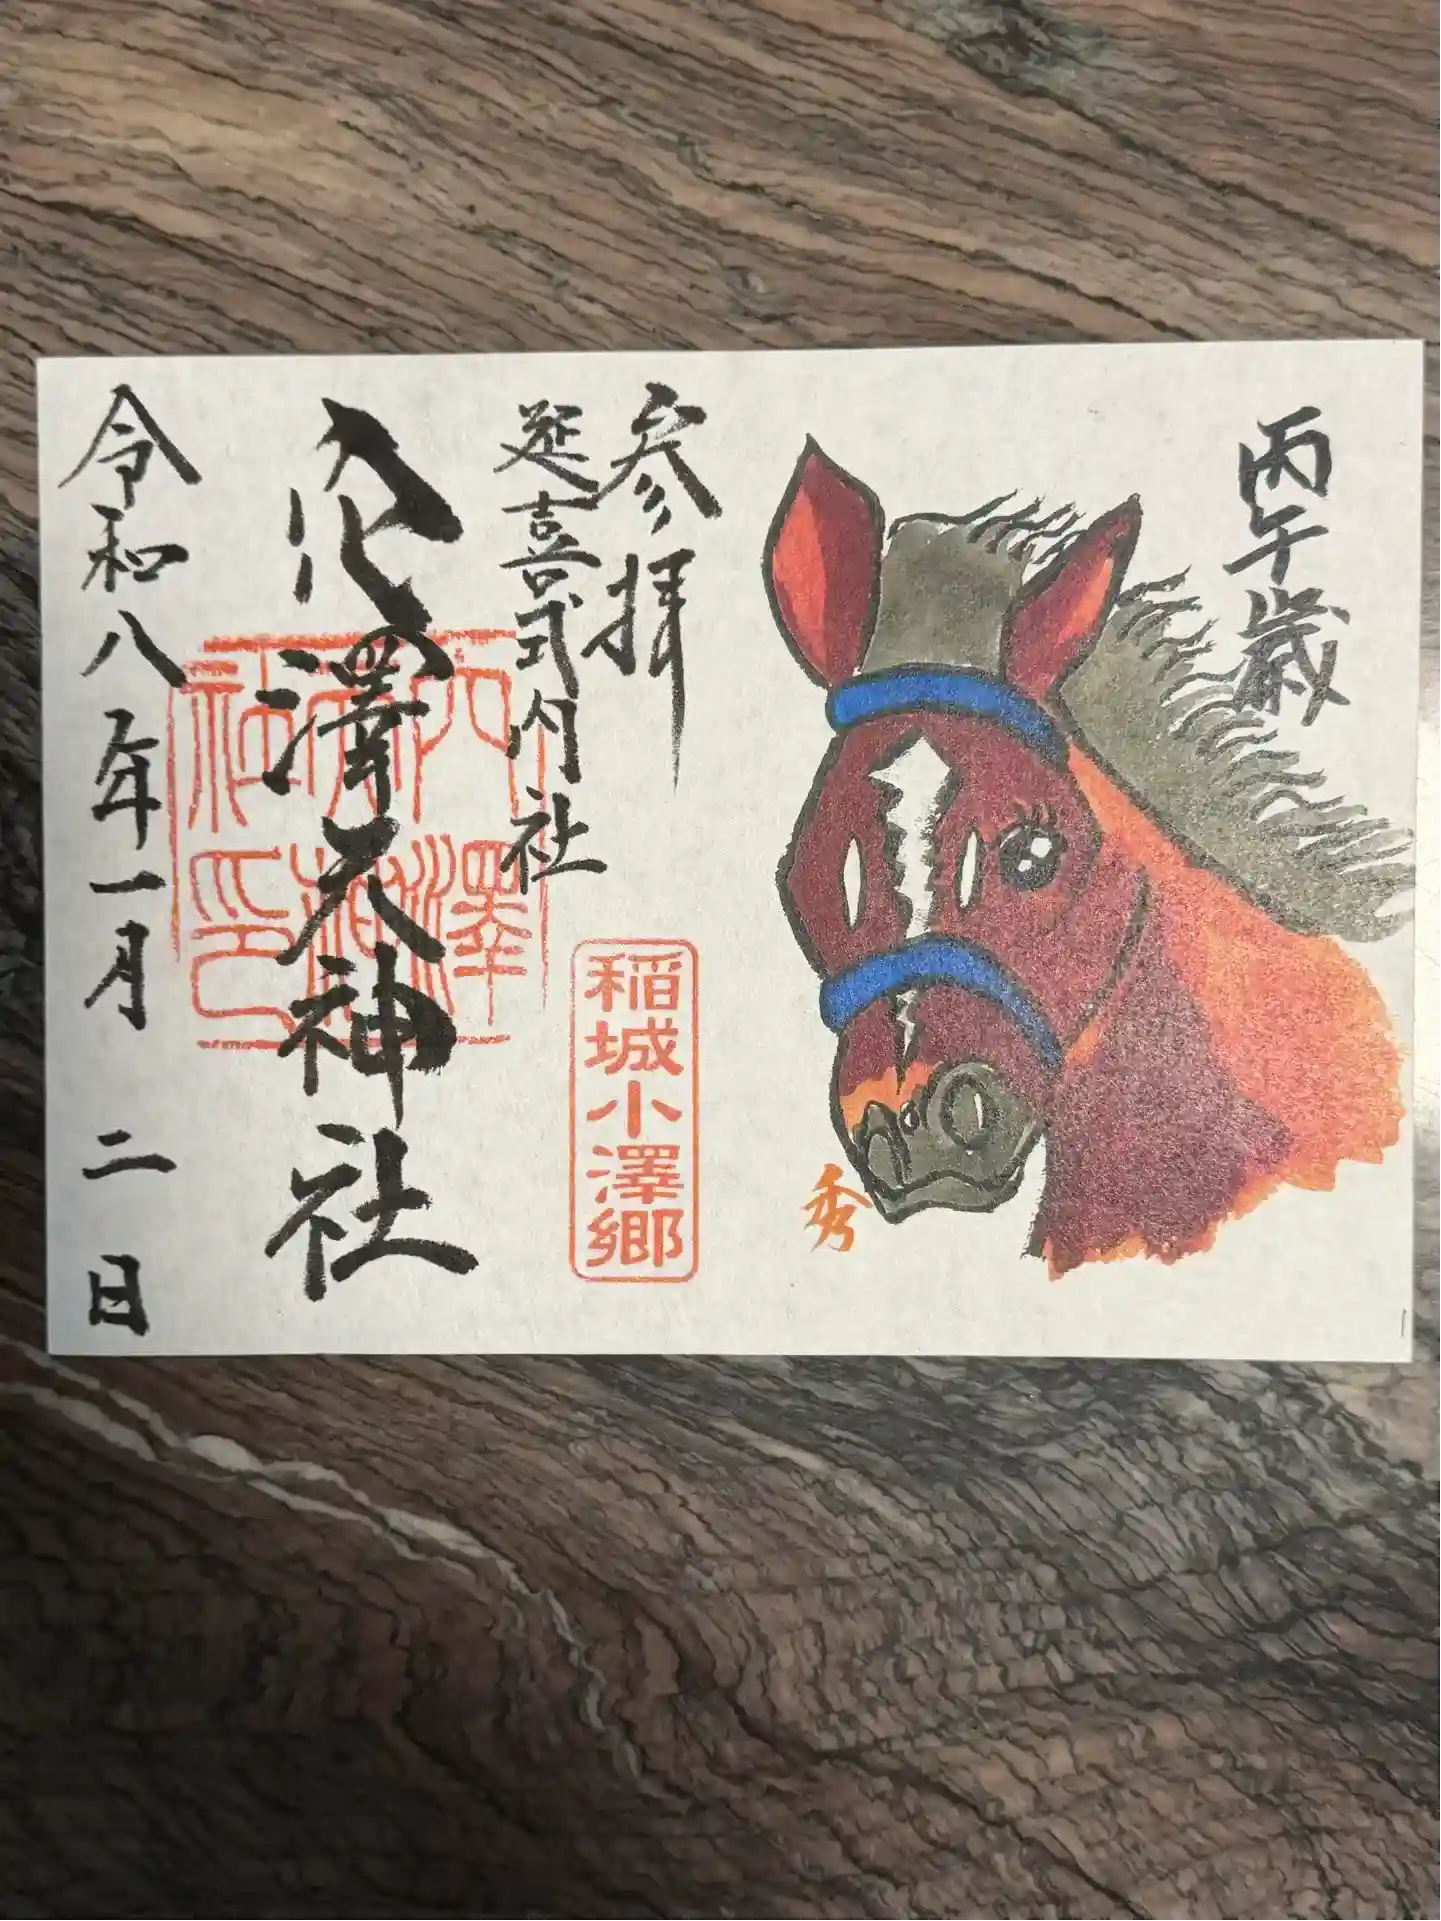 丙午歳
秀
参拝
延喜式内社
稲城小澤郷
穴澤天神社
穴澤
天神
社印
令和八年一月二日